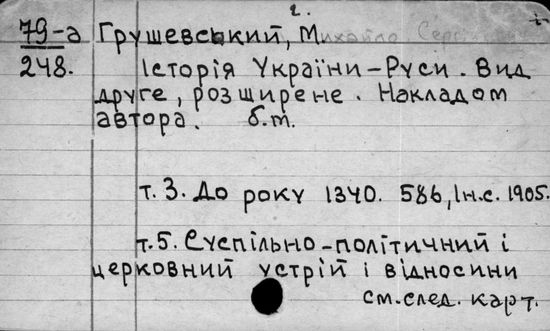 2.
79-а Грушевський, Михайло Сергій
248. Історія України-Руси. Вид
друге, розширене. Накладом
автора. б.т.
т. 3. До року 1340. 586, Ін.с. 1905.
т.5. Суспільно-політичний і
церковний устрій і відносини
см. след. карт.